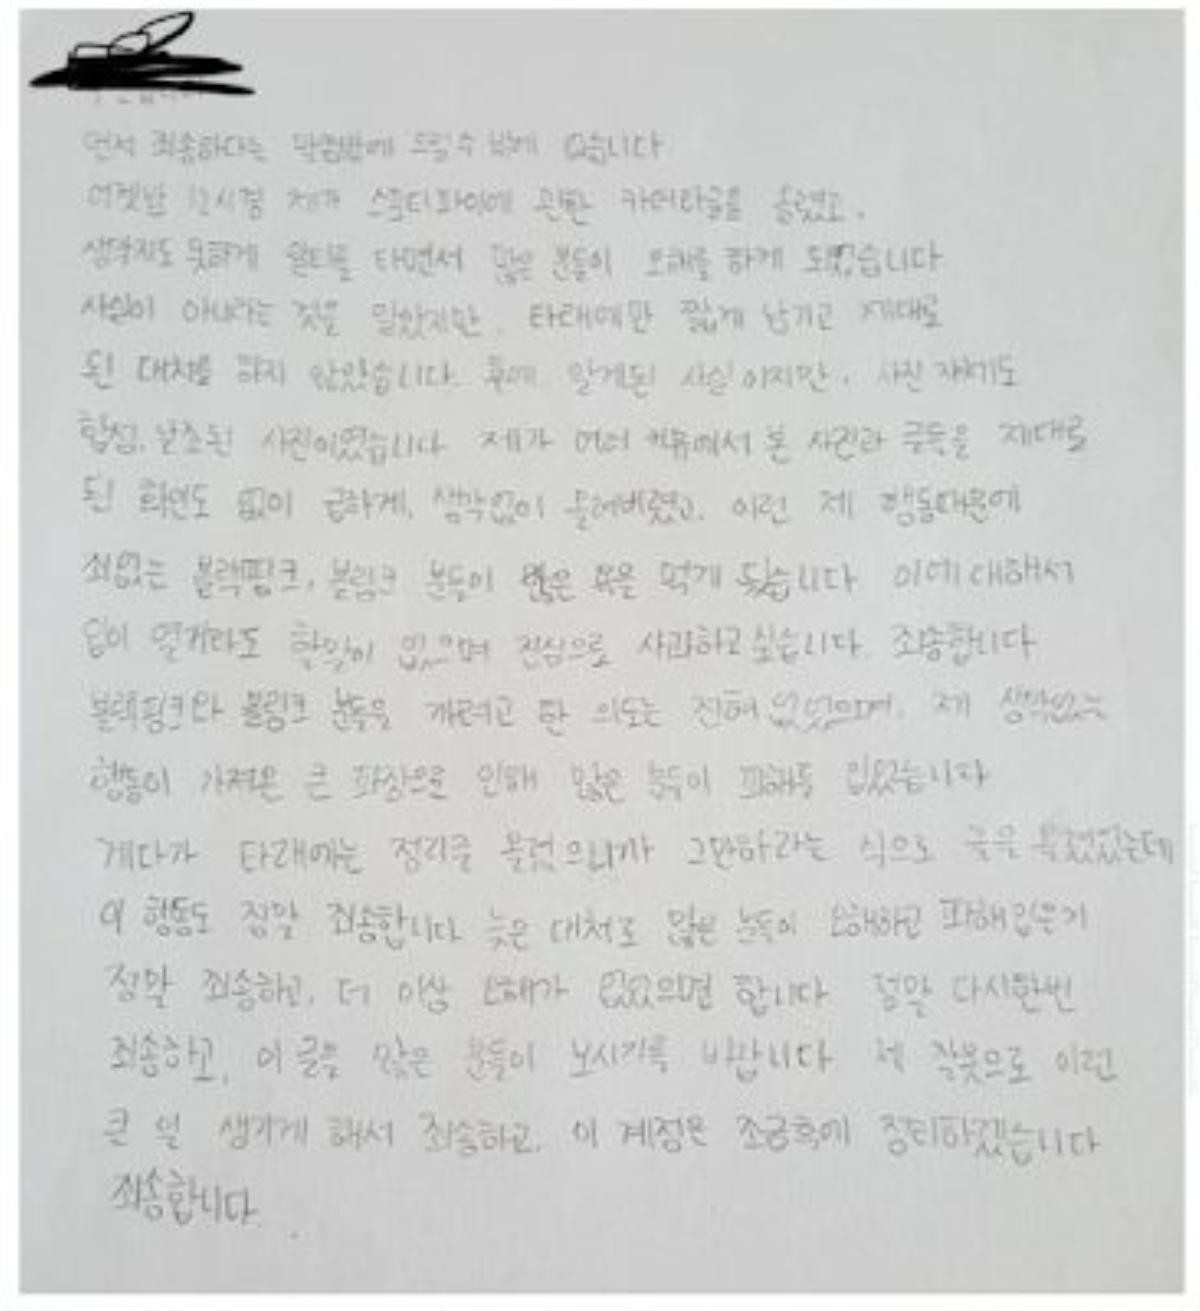 먼저 죄송하다는 말씀밖에 드릴수 밖에 없습니다
어젯밤 12시경 제가 스포티파이에 관한 카더라글을 올렸고,
생각지도 못하게 알티를 타면서 많은 분들이 오해를 하게 되었습니다
사실이 아니라는 것을 알았지만, 타래에만 짧게 남기고 제대로
된 대처를 하지 않았습니다. 후에 알게된 사실이지만, 사진 자체도
합성, 날조된 사진이었습니다 제가 여러 커뮤에서 본 사진과 글들을 제대로
된 확인도 없이 급하게, 생각없이 올려버렸고, 이런 제 행동때문에
죄없는 블랙핑크, 블링크 분들이 많은 욕을 먹게 됐습니다 이에대해서
입이 열개라도 할말이 없으며 진심으로 사과하고 싶습니다. 죄송합니다
블랙핑크와 블링크 분들을 까려고 한 의도는 전혀 없었으며, 제 생각없는
행동이 가져온 큰 파장으로 인해 많은 분들이 피해를 입었습니다
게다가 타래에는 정리글 올렸으니까 그만하라는 식으로 글을 올렸었는데
이 행동도 정말 죄송합니다 늦은 대처로 많은 분들이 오해하고 피해입은거
정말 죄송하고, 더 이상 오해가 없었으면 합니다 정말 다시한번
죄송하고, 이 글을 많은 분들이 보시기를 바랍니다 제 잘못으로 이런
큰 일 생기게 해서 죄송하고, 이 계정은 조금후에 정리하겠습니다
죄송합니다.